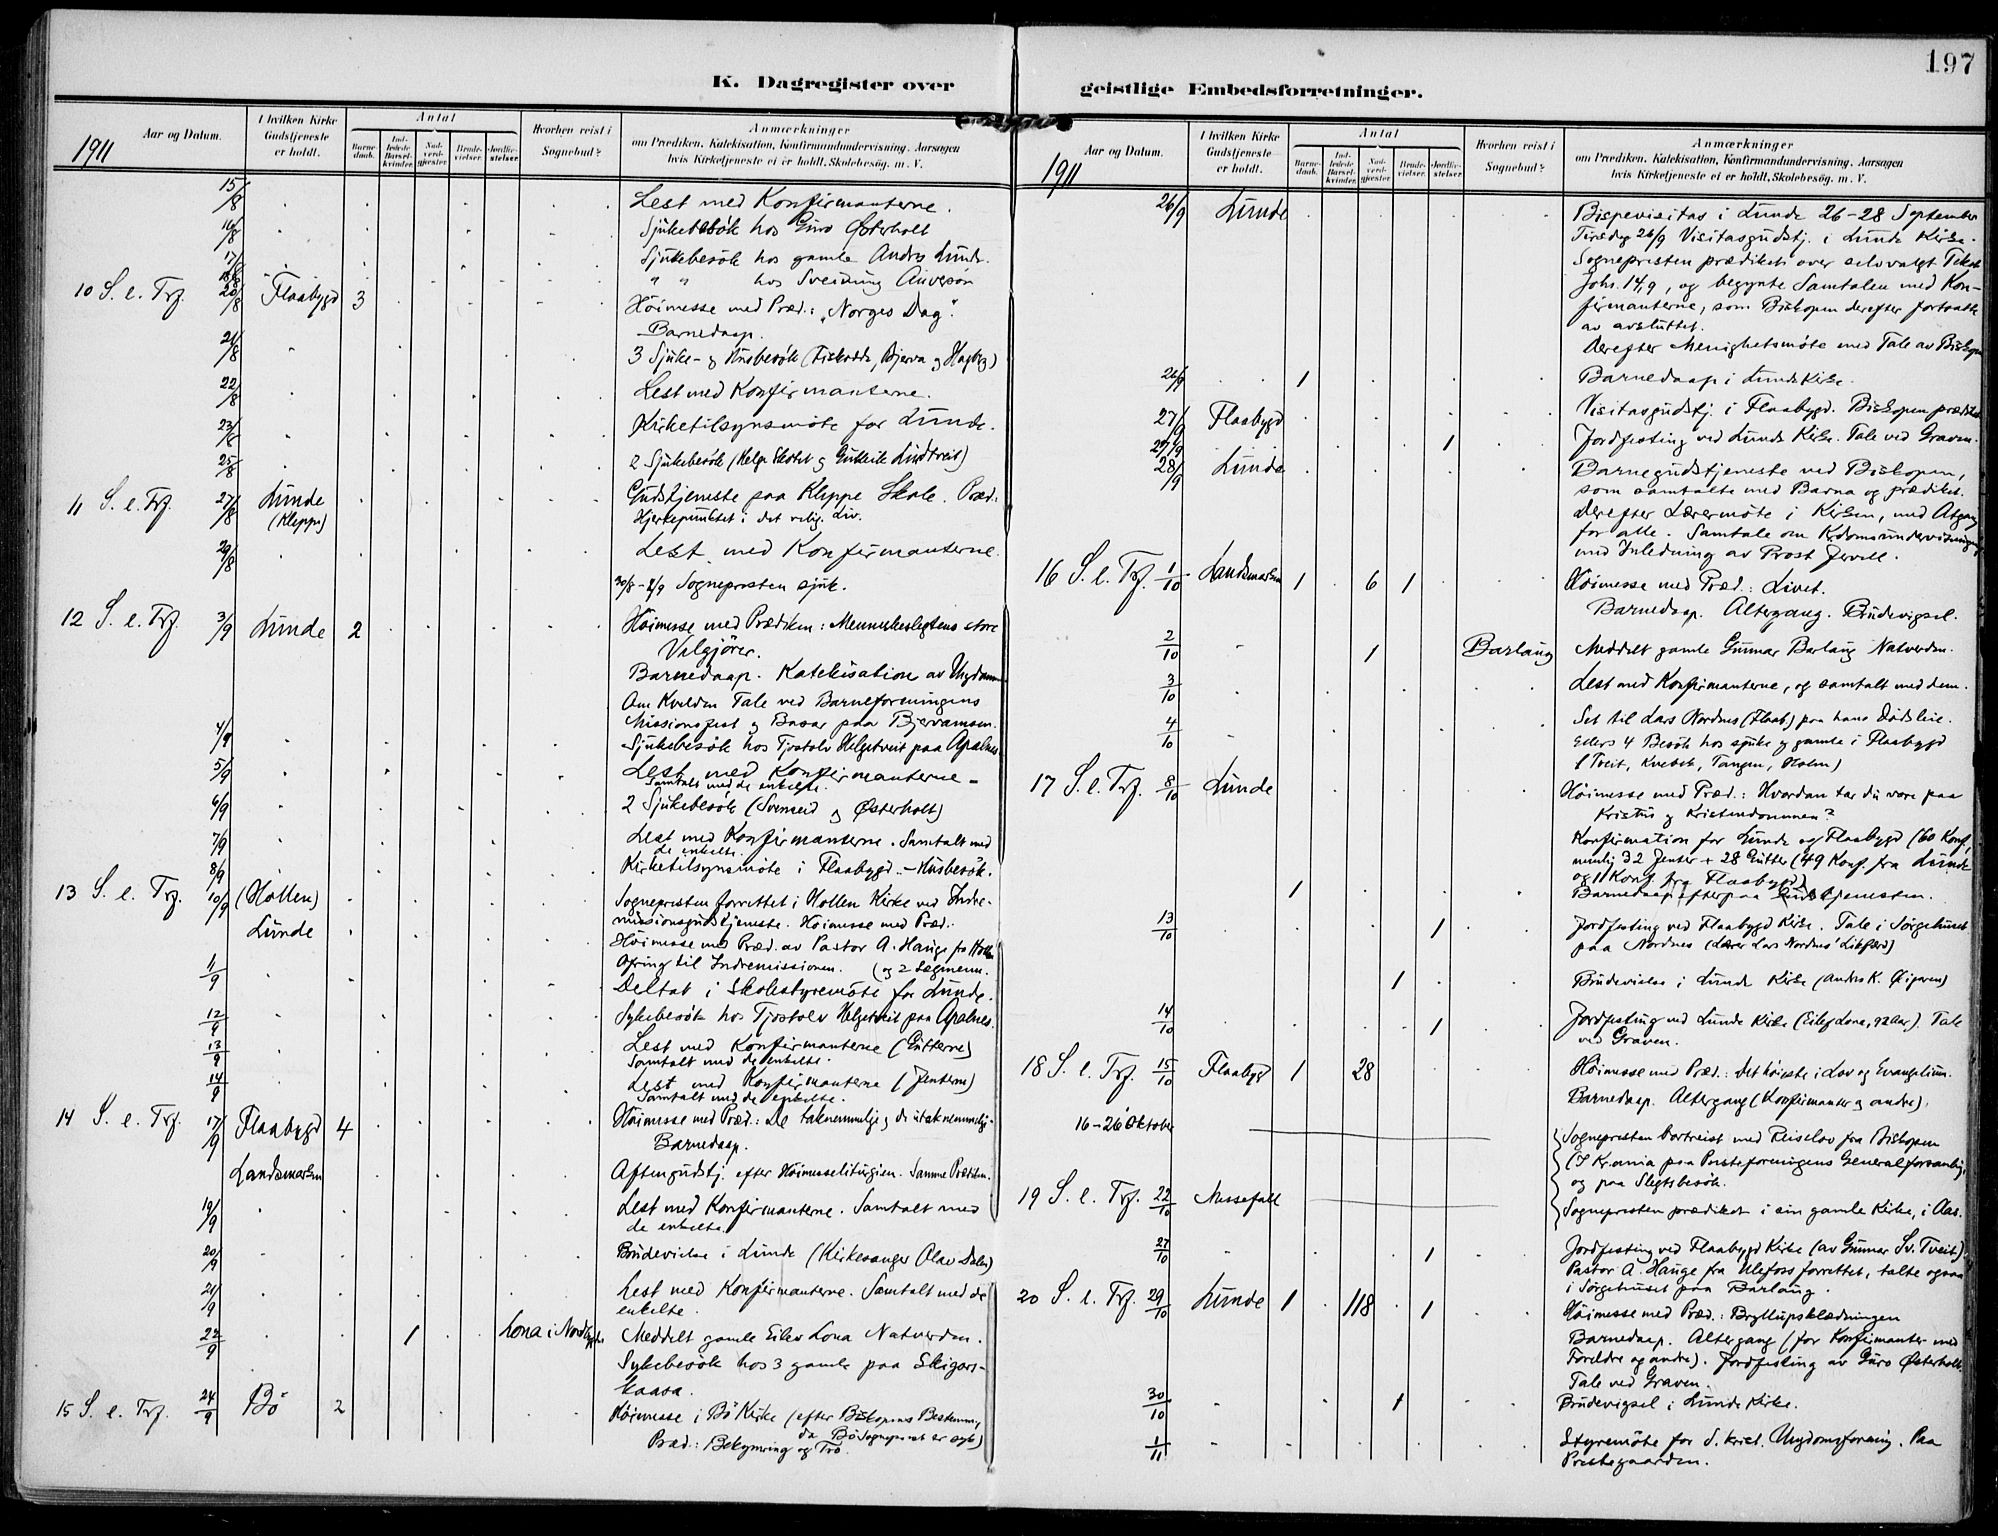 197
K. Dagregister over
geistlige Embedsforretninger.
1911
Aar og Datum.
I hvilken Kirke Gudstjeneste er holdt.
Antal
Barne-daab.
Ind-ledede Barsel-kvinder.
Nad-verd-gjester.
Brude-vielser.
Jordfæ-stelser.
Hvorhen reist i Sognebud?
Anmærkninger
om Prædiken, Katekisation, Konfirmandundervisning, Aarsagen
hvis Kirketjeneste ei er holdt, Skolebesøg. m. V.
15/8 Lest med Konfirmanterne.
16/8 Sjukebesök hos Guro Österholt
17/8 Sjukebesök hos gamle Andres Lunde.
" " hos Sveinung
10 S. e. Trf. 20/8 Flaabygd 3 Höimesse med Præd.: "Norges Dag".
Barnedaap.
21/8 3 Sjuke- og Husbesök
22/8 Lest med Konfirmanterne.
23/8 Kirketilsynsmöte for Lunde.
25/8 2 Sjukebesök
11 S. e. Trf. 27/8 Lunde (Kleppe) Gudstjeneste paa Kleppe Skole. Præd.:
Hjertepunktet i det relig. Liv.
29/8 Lest med Konfirmanterne.
Sognepresten sjuk.
12 S. e. Trf. 3/9 Lunde 2 Höimesse med Prædiken: Menneskeslegtens store
Velgjörer.
Barnedaap. Katekisation av Ungdommen
Om Kvelden Tale ved Barneforeningens
Missionsfest og Basar paa
4/9 Sjukebesök hos Tjostolv Helgetveit paa Apalnes
5/9 Lest med Konfirmanterne -
Samtalt med de enkelte.
6/9 2 Sjukebesök (Svenseid og Österholt)
7/9 Lest med Konfirmanterne. Samtalt med
de enkelte.
8/9 Kirketilsynsmöte i Flaabygd. - Husbesök.
13 S. e. Trf. 10/9 (Hollen) Sognepresten forrettet i Hollen Kirke ved Indre-
missionsgudstjeneste. Höimesse med Præd.:
Lunde Höimesse med Præd. av Pastor A. Hauge fra Hollen
Ofring til Indremissionen. (og 2 Lægmenn.
11/9 Deltat i Skolestyremöte for Lunde.
12/9 Sykebesök hos Tjostolv Helgetveit paa Apalnes.
13/9 Lest med Konfirmanterne (Gutterne)
Samtalt med de enkelte.
14/9 Lest med Konfirmanterne (Jenterne)
Samtalt med de enkelte.
14 S. e. Trf. 17/9 Flaabygd 4 Höimesse med Præd.: De taknemmelige og de utaknemmelige.
Barnedaap.
Landsmarken Aftengudstj. efter Höimesseliturgien. Samme Prædiken.
19/9 Lest med Konfirmanterne. Samtalt med
de enkelte.
20/9 Brudevielse i Lunde (Kirkesanger Olav Dalen)
21/9 Lest med Konfirmanterne. Samtalt med de
enkelte.
22/9 1 Lona i Nordbygden Meddelt gamle Eilev Lona Natverden.
Sykebesök hos 3 gamle paa Skigars-
kaasa.
15 S. e. Trf. 24/9 Bö 2 Höimesse i Bö Kirke (efter Biskopens Bestemm.,
da Bö Sogneprest er syk)
Præd.: Bekymring og Tro.
1911
Aar og Datum.
I hvilken Kirke Gudstjeneste er holdt.
Antal
Barne-daab.
Ind-ledede Barsel-kvinder.
Nad-verd-gjester.
Brude-vielser.
Jordfæ-stelser.
Hvorhen reist i Sognebud?
Anmærkninger
om Prædiken, Katekisation, Konfirmandundervisning, Aarsagen
hvis Kirketjeneste ei er holdt, Skolebesøg. m. V.
26/9 Lunde Bispevisitas i Lunde 26-28 September
Tirsdag 26/9 Visitasgudstj. i Lunde Kirke.
Sognepresten prædiket over selvvalgt Tekst
Johs. 14,9, og begynte Samtalen med Kon-
firmanterne, som Biskopen derefter fortsatte
av avsluttet.
Derefter Menighetsmöte med Tale av Biskopen
26/9 1 Barnedaap i Lunde Kirke.
27/9 Flaabygd Visitasgudstj. i Flaabygd. Biskopen prædiket
27/9 1 Jordfesting ved Lunde Kirke. Tale ved Graven.
28/9 Lunde Barnegudstjeneste ved Biskopen,
som samtalte med Barna og prædiket.
Derefter Lærermöte i Kirken, med Adgang
for alle. Samtale om Kr.domsundervisningen,
med Inledning av Prost Jervell.
16 S. e. Trf. 1/10 Landsmarken 1 6 1 Höimesse med Præd.: Livet.
Barnedaap. Altergang. Brudevigsel.
2/10 1 Barlaug Meddelt gamle Gunnar Barlaug Natverden.
3/10 Lest med Konfirmanterne, og samtalt med dem.
4/10 Set til Lars Nordnes (Flaab.) paa hans Dödsleie.
Ellers 4 Besök hos sjuke og gamle i Flaabygd
(Tveit, Kvebek, Tangen, Holm)
17 S. e. Trf. 8/10 Lunde Höimesse med Præd.: Hvordan tar du vare paa
Kristus og Kristendommen?
Konfirmation for Lunde og Flaabygd (60 Konf.,
nemlig 32 Jenter + 28 Gutter (49 Konf. fra Lunde
og 11 Konf. fra Flaabygd)
1 Barnedaap efterpaa Gudstjenesten.
13/10 1 Jordfesting ved Flaabygd Kirke. Tale i Sørgehuset
paa Nordnes (Lærer Lars Nordnes' Likfærd)
1 Brudevielse i Lunde Kirke
14/10 1 Jordfesting ved Lunde Kirke (Eilef Lona, 92 Aar). Tale
ved Graven.
18 S. e. Trf. 15/10 Flaabygd 1 28 Höimesse med Præd.: Det höieste i Lov og Evangelium.
Barnedaap. Altergang (Konfirmanter og andre).
16-26 Oktober Sognepresten bortreist med Reiselov fra Biskopen
(I Kr.ania paa Presteforeningens Generalforsamling,
og paa Slegtsbesök.
19 S. e. Trf. 22/10 Messefall Sognepresten prædiket i sin gamle Kirke, i Aas.
27/10 1 Jordfesting ved Flaabygd Kirke (av Gunnar Sv. Tveit)
Pastor A. Hauge fra Ulefoss forrettet, talte ogsaa
i Sørgehuset paa Barlaug.
20 S. e. Trf. 29/10 Lunde 1 118 1 Höimesse med Præd.: Bryllupsklædningen
Barnedaap. Altergang (for Konfirmanter med
Foreldre og andre). Jordfesting av Guro Österholt.
Tale ved Graven.
30/10 1 Brudevigsel i Lunde Kirke.
1/11 Styremöte for L. krist. Ungdomsforening. Paa
Prestegaarden.